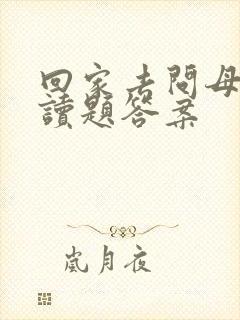 回家去問母
讀題答案
嵐月夜